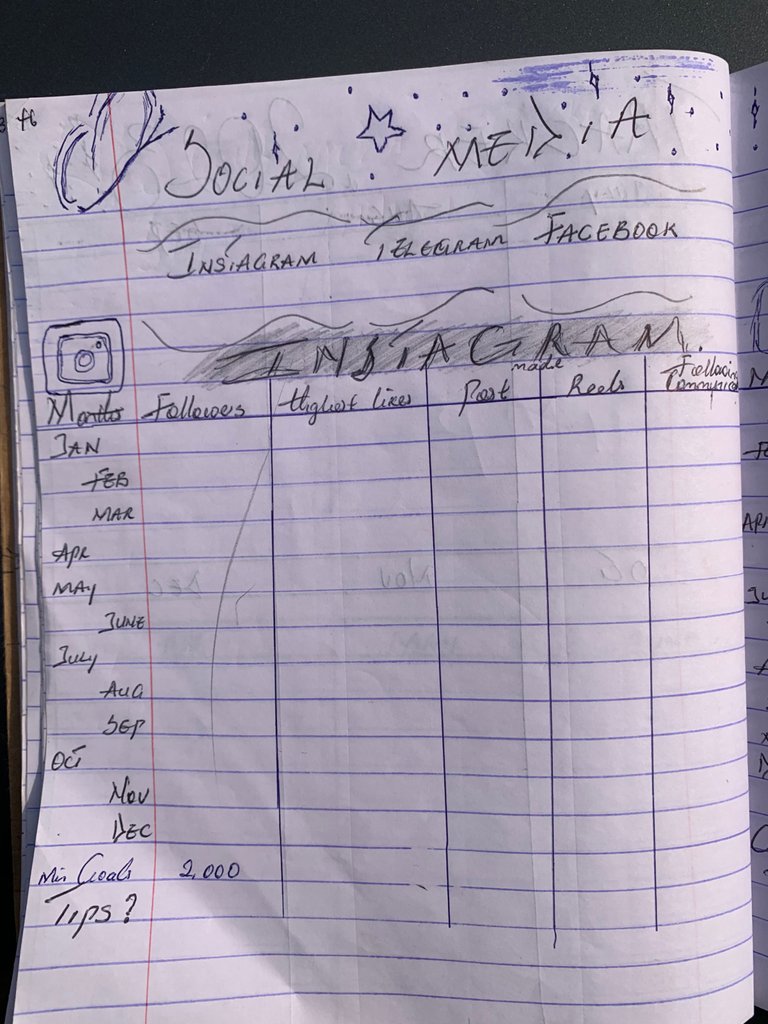 SOCIAL MEDIA
INSTAGRAM TELEGRAM FACEBOOK
INSTAGRAM
Months Followers Highest likes Post made Reels Following
JAN
FEB
MAR
APR
MAY
JUNE
JULY
AUG
SEP
OCT
NOV
DEC
Min Goals 2,000
Tips?